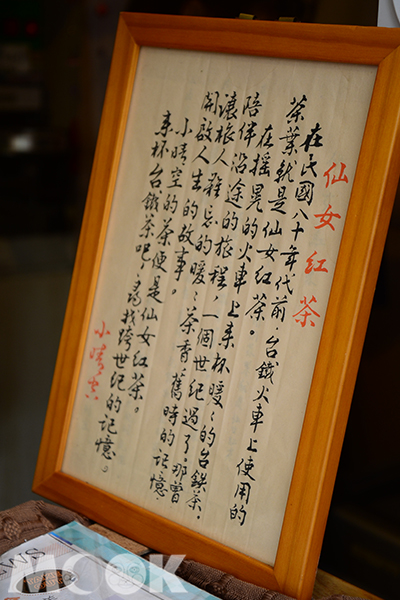 仙女紅茶
在民國八十年代前，台鐵火車上使用的
茶葉就是仙女紅茶。
在搖晃的火車上來杯暖〻的台鉄茶，
陪伴沿途的旅程，一個世紀過了，那曾
讓旅人難忘的暖〻茶香舊時的記憶
開啟人生的故事。
小晴空的茶便是仙女紅茶。
來杯台鐵茶吧，尋找跨世紀的記憶。
小晴空
MOOK